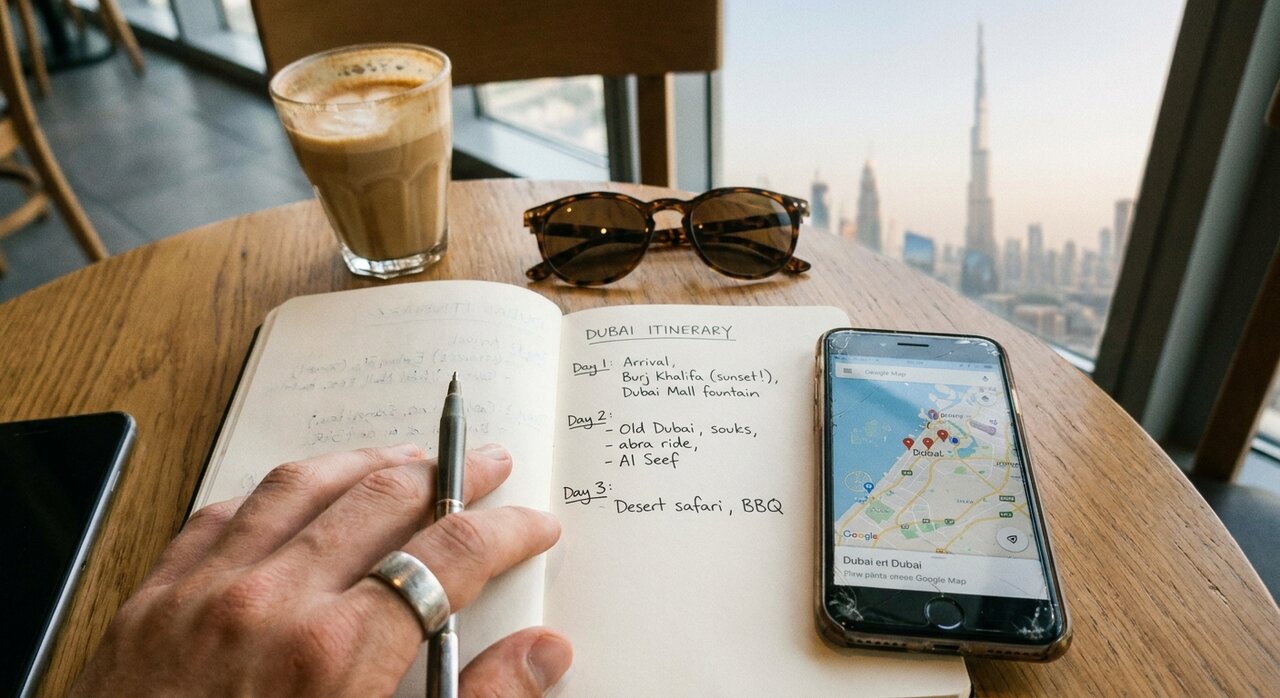 DUBAI ITINERARY
Day 1: Arrival,
Burj Khalifa (sunset!),
Dubai Mall fountain
Day 2:
- Old Dubai, souks,
- abra ride,
- Al Seef
Day 3:
- Desert safari, BBQ
Google Map
Dubai
Google
Dubai ert Dubai
Google Map